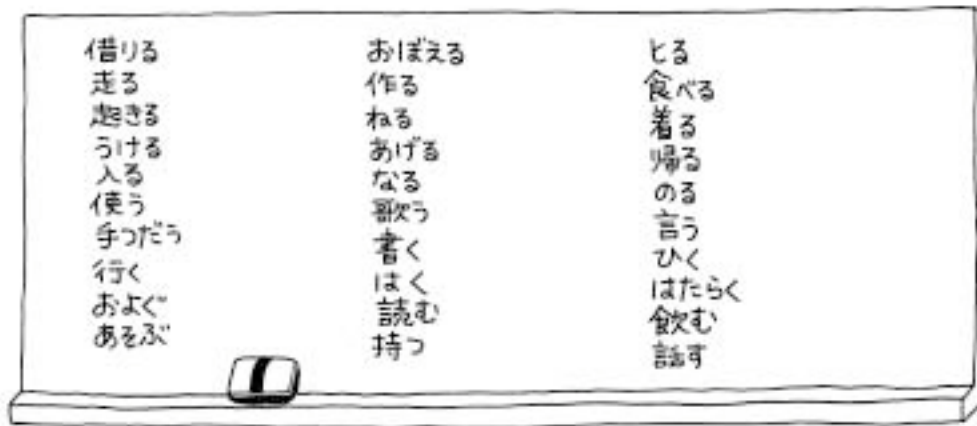 借りる
走る
起きる
うける
入る
使う
手つだう
行く
およぐ
あそぶ
おぼえる
作る
ねる
あげる
なる
歌う
書く
はく
読む
持つ
とる
食べる
着る
帰る
のる
言う
ひく
はたらく
飲む
話す